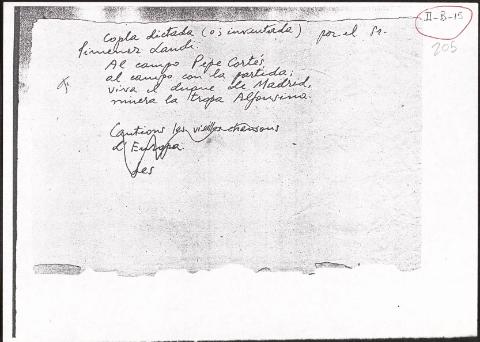 II-B-15
205
Copla dictada (o ¿inventada) por el Sr.
Jimenez Landi.
Al campo Pepe Cortés
al campo con la partida;
viva el duque de Madrid,
muera la tropa Alfonsina.
les
d'Europa.
Les